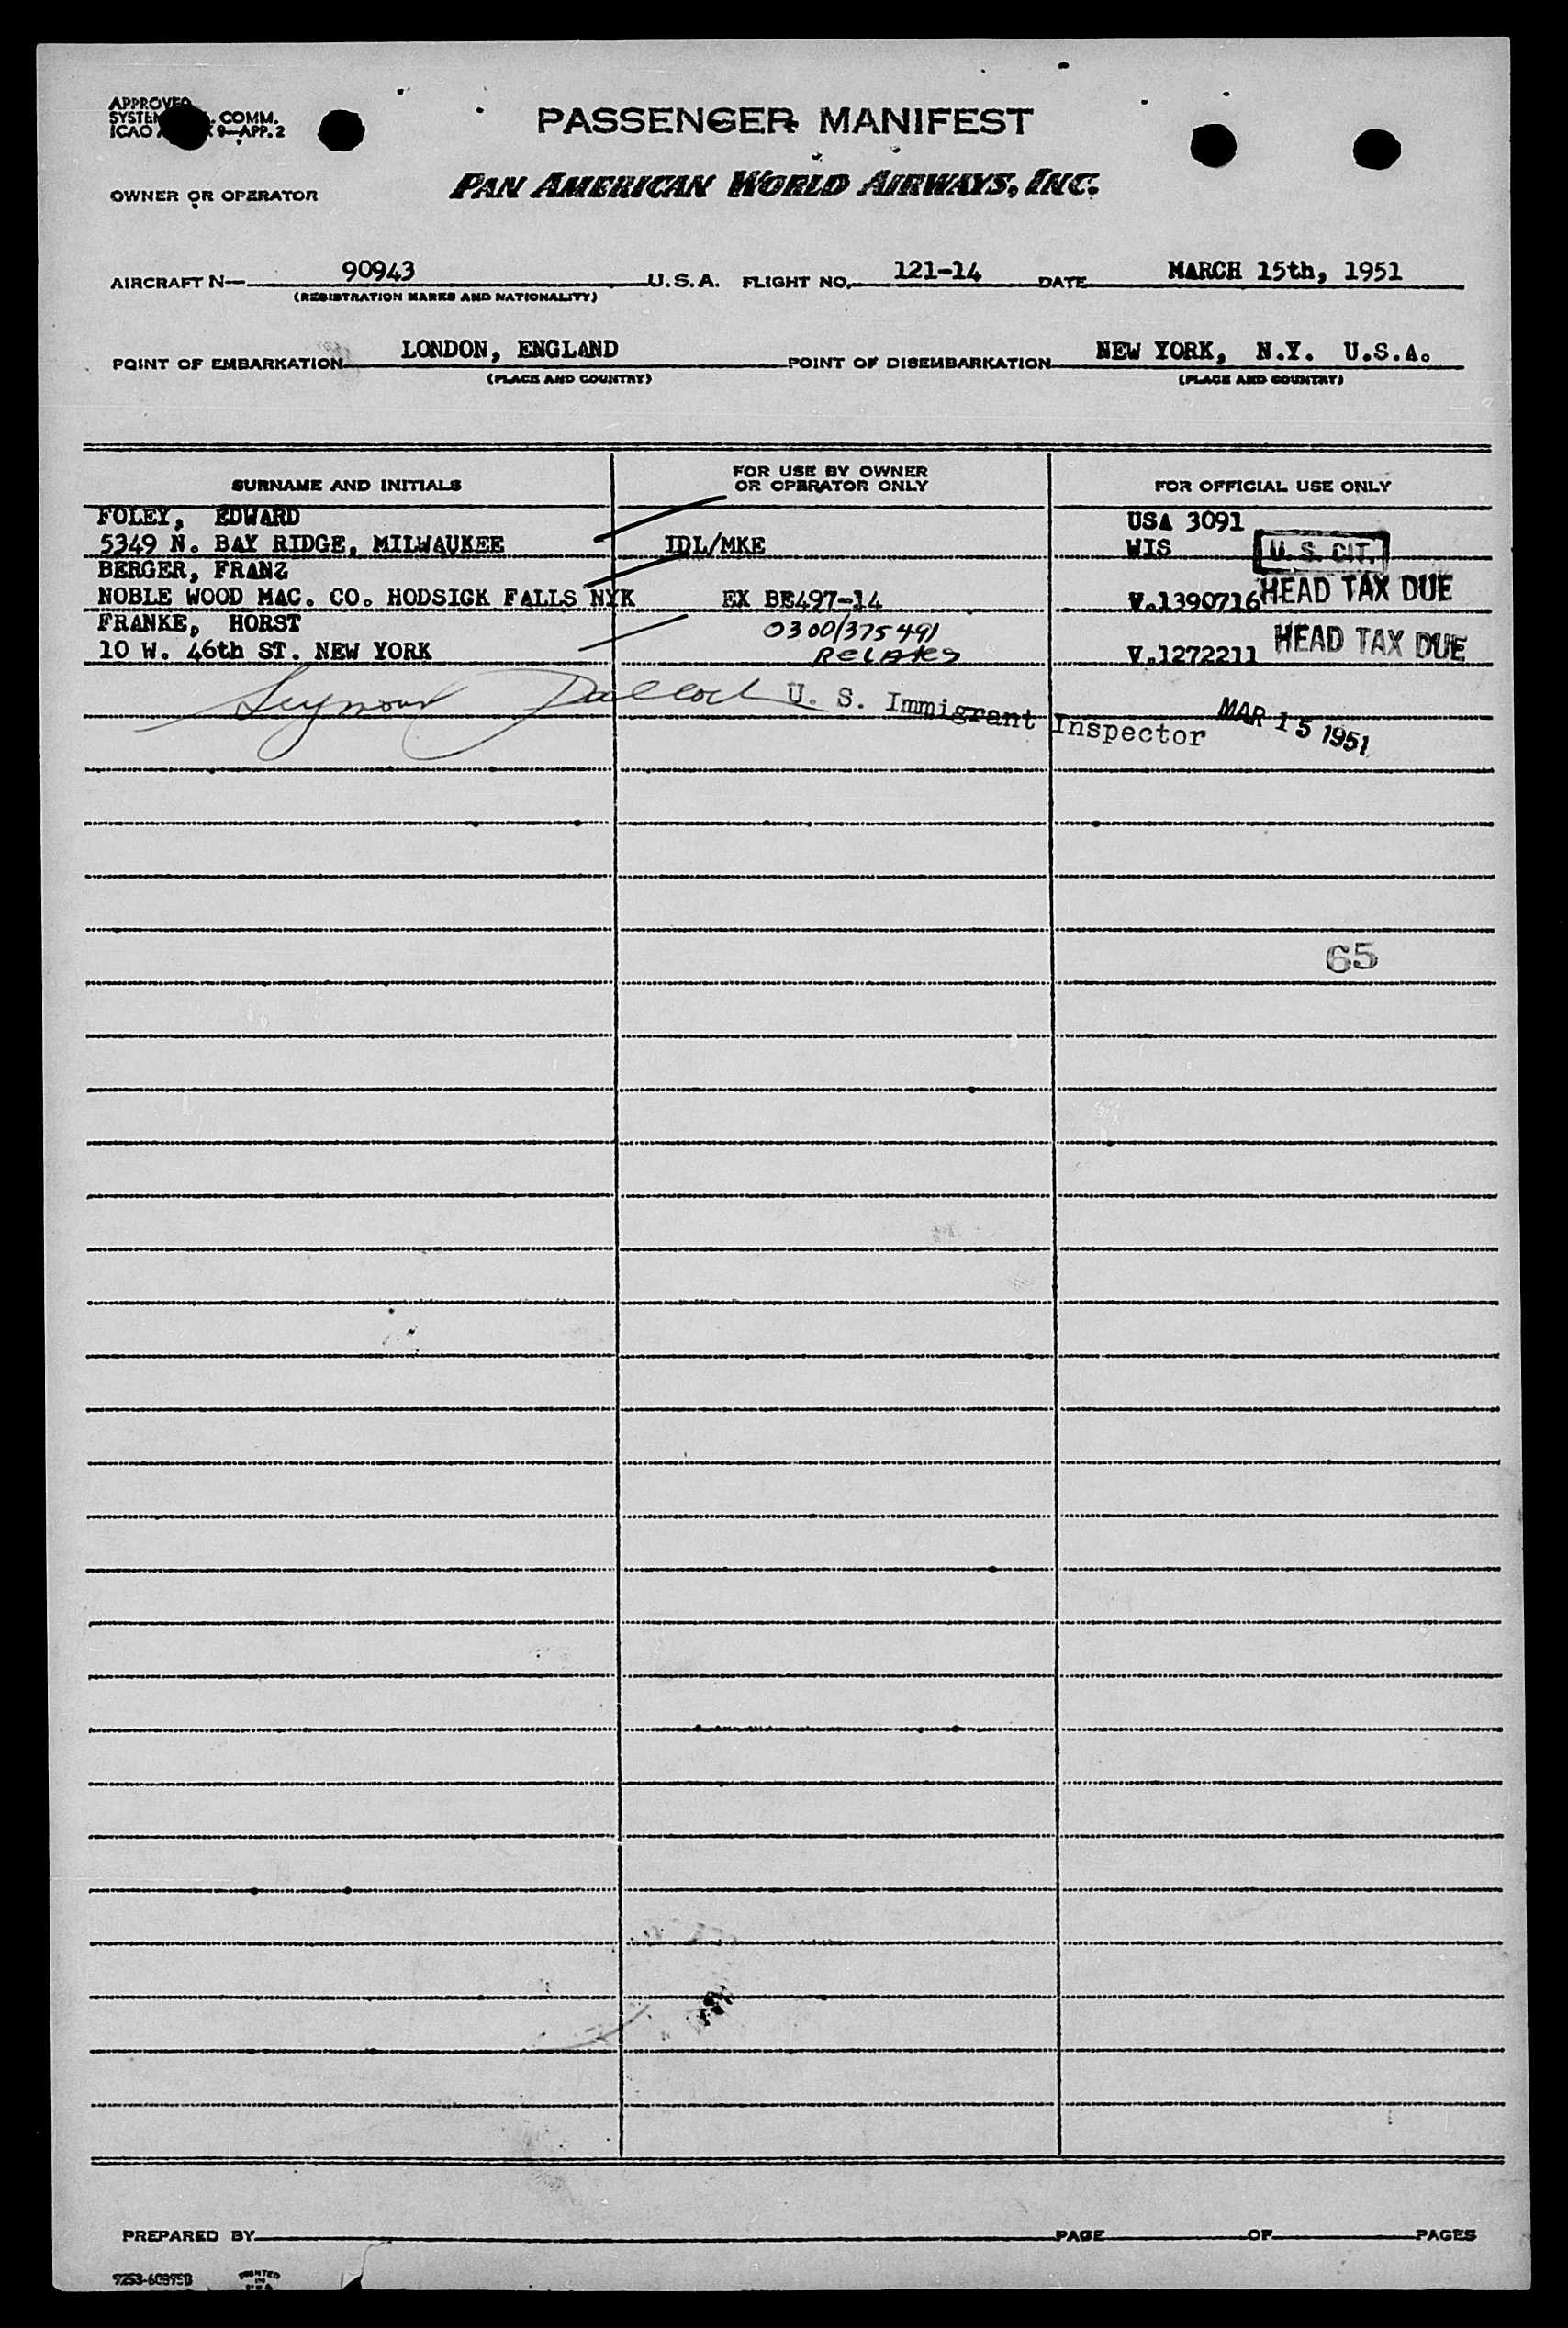 APPROVED
SYSTEM COMM.
ICAO 9—APP. 2
PASSENGER MANIFEST
OWNER OR OPERATOR
PAN AMERICAN WORLD AIRWAYS, INC.
AIRCRAFT N— 90943 U.S.A. FLIGHT NO. 121-14 DATE MARCH 15th, 1951
(REGISTRATION MARKS AND NATIONALITY)
POINT OF EMBARKATION LONDON, ENGLAND POINT OF DISEMBARKATION NEW YORK, N.Y. U.S.A.
(PLACE AND COUNTRY) (PLACE AND COUNTRY)
SURNAME AND INITIALS FOR USE BY OWNER OR OPERATOR ONLY FOR OFFICIAL USE ONLY
FOLEY, EDWARD USA 3091
5349 N. BAY RIDGE, MILWAUKEE IDL/MKE WIS U. S. CIT.
BERGER, FRANZ
NOBLE WOOD MAC. CO. HODSIGK FALLS NYK EX BE497-14 V.1390716 HEAD TAX DUE
FRANKE, HORST 0300/375491
10 W. 46th ST. NEW YORK V.1272211 HEAD TAX DUE
Seymour U. S. Immigrant Inspector MAR 15 1951
65
PREPARED BY PAGE OF PAGES
PRINTED
IN